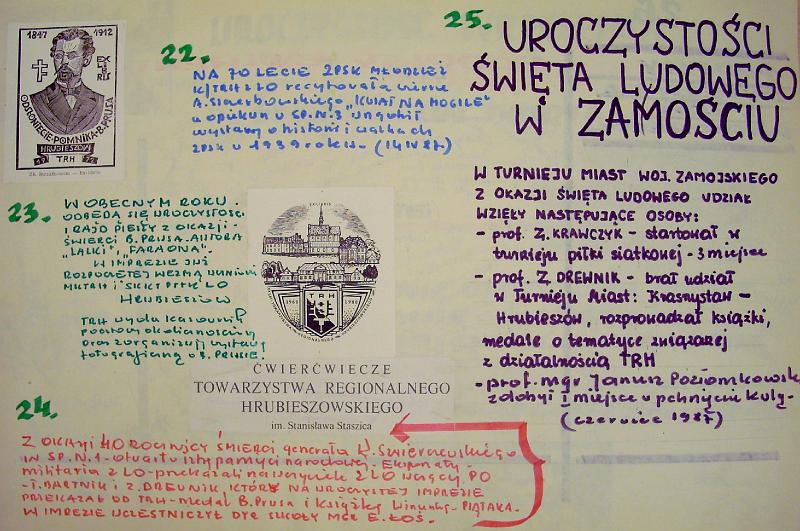 1847 1912
EX LIBRIS
ODSŁONIĘCIE·POMNIKA·B.PRUSA
HRUBIESZÓW
1972
TRH
22.
NA 70 LECIE 2PSK MŁODZIEŻ
K/TRH 2 LO recytowała wiersz
"KWIAT NA MOGIŁĘ"
a opiekun w SP.N.3 wygłosił
wystawy o historii i walkach
2PSK w 1939 roku. - (14 IV 87)
23.
W OBECNYM ROKU
ODBĘDĄ SIĘ UROCZYSTOŚCI
I RAJD PIESZY Z OKAZJI
ŚMIERCI B. PRUSA. AUTORA
"LALKI", "FARAONA".
W IMPREZIE JUŻ
ROZPOCZĘTEJ WEZMĄ
HRUBIESZÓW
TRH wyda
oraz zorganizuj wystawę
fotograficzną o B. PRUSIE.
EXLIBRIS
TRH
ĆWIERĆWIECZE
TOWARZYSTWA REGIONALNEGO
HRUBIESZOWSKIEGO
im. Stanisława Staszica
24.
Z OKAZJI 40 ROCZNICY ŚMIERCI generała K. Świerczewskiego
w SP.N.1 - otwarto izbę pamięci narodowej. Eksponaty -
militaria z LO - przekazali nauczyciele 2 LO
- T. BARTNIK i Z. DREWNIK, KTÓRY NA UROCZYSTEJ IMPREZIE
PRZEKAZAŁ OD TRH - medal B. Prusa i książkę PIĄTAKA.
W IMPREZIE UCZESTNICZYŁ DYR SZKOŁY MGR E. ŁOŚ.
25.
UROCZYSTOŚCI
ŚWIĘTA LUDOWEGO
W ZAMOŚCIU
W TURNIEJU MIAST WOJ. ZAMOJSKIEGO
Z OKAZJI ŚWIĘTA LUDOWEGO UDZIAŁ
WZIĘŁY NASTĘPUJĄCE OSOBY:
- prof. Z. KRAWCZYK - startował w
turnieju piłki siatkowej - 3 miejsce
- prof. Z. DREWNIK - brał udział
w Turnieju Miast: Krasnystaw -
Hrubieszów, rozprowadzał książki,
medale o tematyce związanej
z działalnością TRH
- prof. mgr Janusz Poziomkowski
zdobył I miejsce w pchnięciu kulą -
(czerwiec 1987)